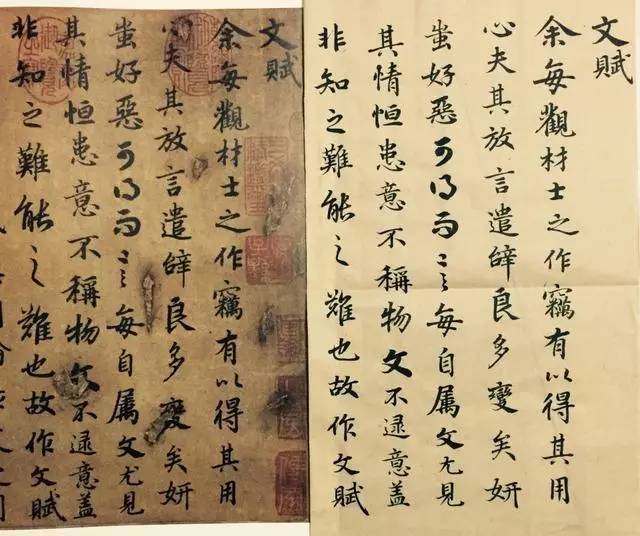 文賦
余每觀材士之作竊有以得其用
心夫其放言遣辭良多變矣妍
蚩好惡可得而言每自屬文尤見
其情恒患意不稱物文不逮意蓋
非知之難能之難也故作文賦
文賦
余每觀材士之作竊有以得其用
心夫其放言遣辭良多變矣妍
蚩好惡可得而言每自屬文尤見
其情恒患意不稱物文不逮意蓋
非知之難能之難也故作文賦